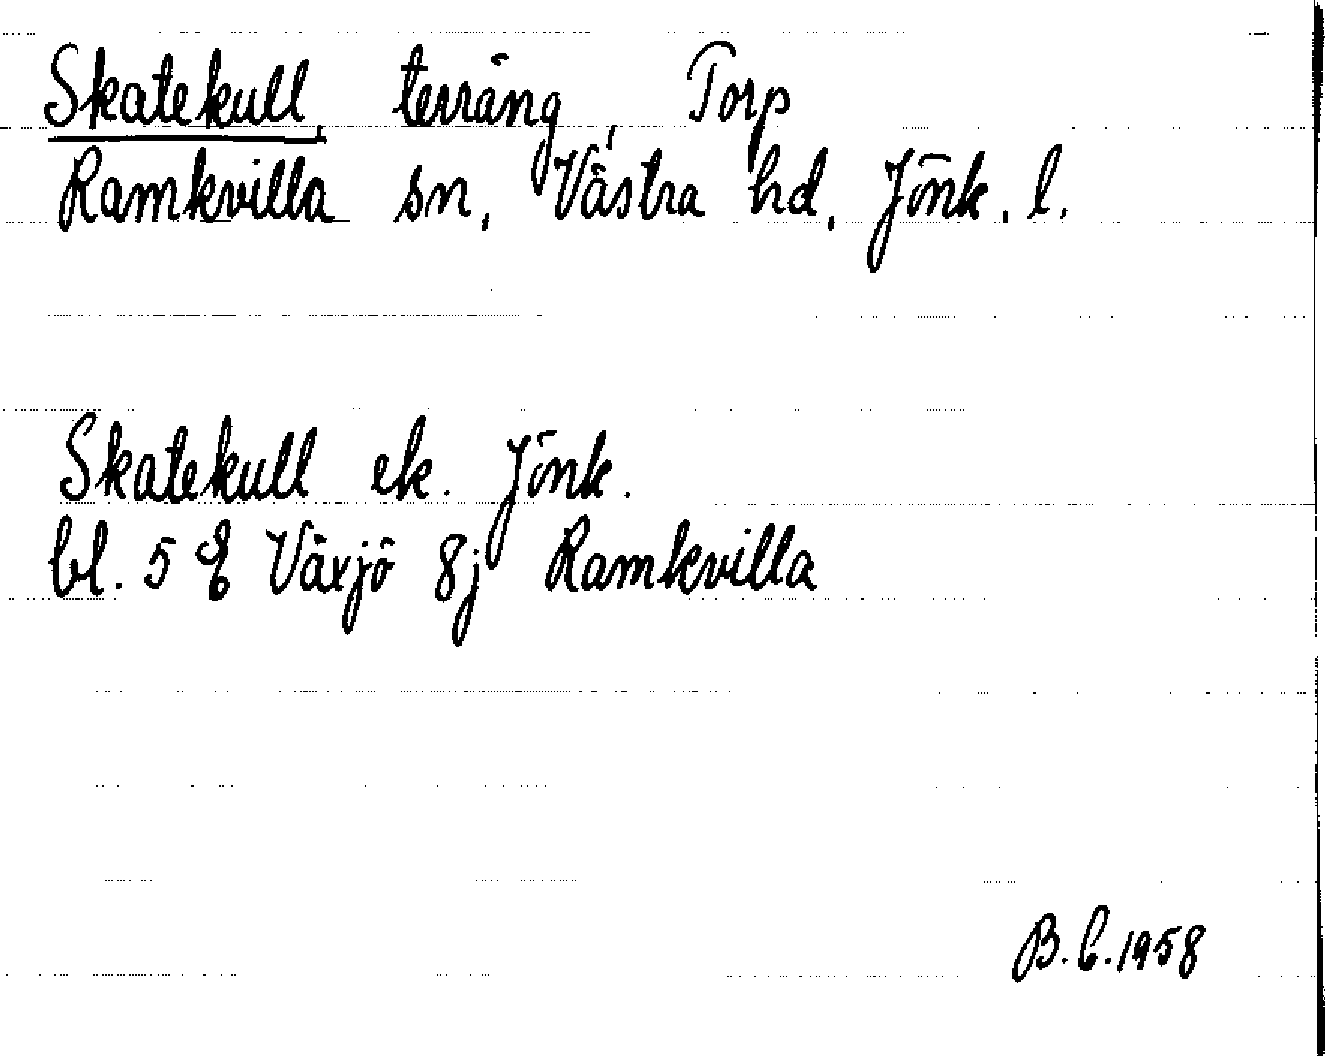 Skatekull, terräng, Torp
Ramkvilla sn, Västra hd, Jönk. l.
Skatekull ek. Jönk.
bl. 5 E Växjö 8j Ramkvilla
B.C.1958